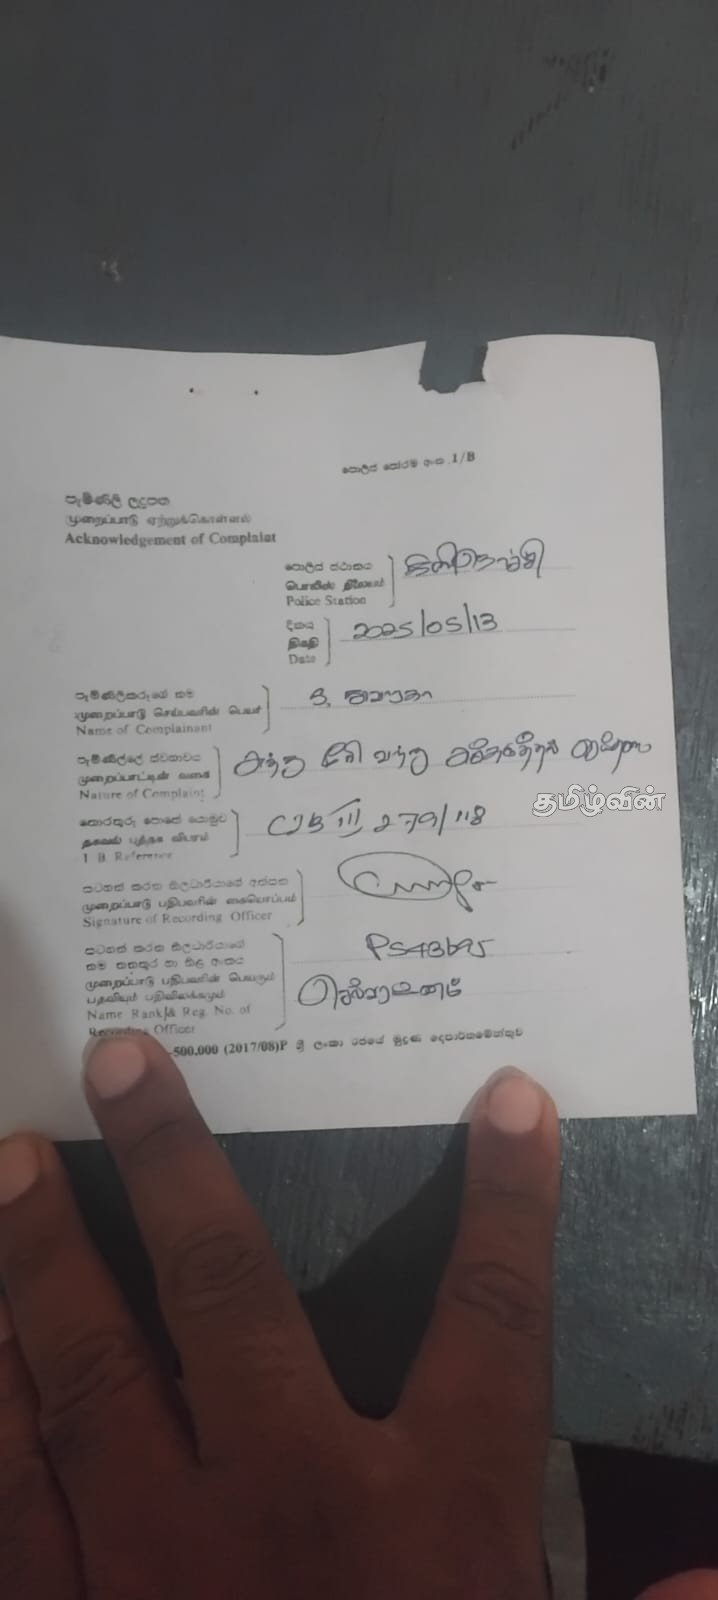 පොලිස් පෝරම අංක 1/B
පැමිණිලි ලදුපත
முறைப்பாடு ஏற்றுக்கொள்ளல்
Acknowledgement of Complaint
පොලිස් ස්ථානය
பொலிஸ் நிலையம்
Police Station
கிளிநொச்சி
දිනය
திகதி
Date
2025/05/13
පැමිණිලිකරුගේ නම
முறைப்பாடு செய்பவரின் பெயர்
Name of Complainant
පැමිණිල්ලේ ස්වභාවය
முறைப்பாட்டின் வகை
Nature of Complaint
வந்து
தமிழ்வின்
තොරතුරු පොතේ යොමුව
தகவல் புத்தக விபரம்
I. B. Reference
CIB III 279/118
සටහන් කරන නිලධාරියාගේ අත්සන
முறைப்பாடு பதிபவரின் கையொப்பம்
Signature of Recording Officer
සටහන් කරන නිලධාරියාගේ
නම තනතුර හා නිල අංකය
முறைப்பாடு பதிபவரின் பெயரும்
பதவியும் பதிவிலக்கமும்
Name Rank & Reg. No. of
Recording Officer
-500,000 (2017/08)P ශ්‍රී ලංකා රජයේ මුද්‍රණ දෙපාර්තමේන්තුව